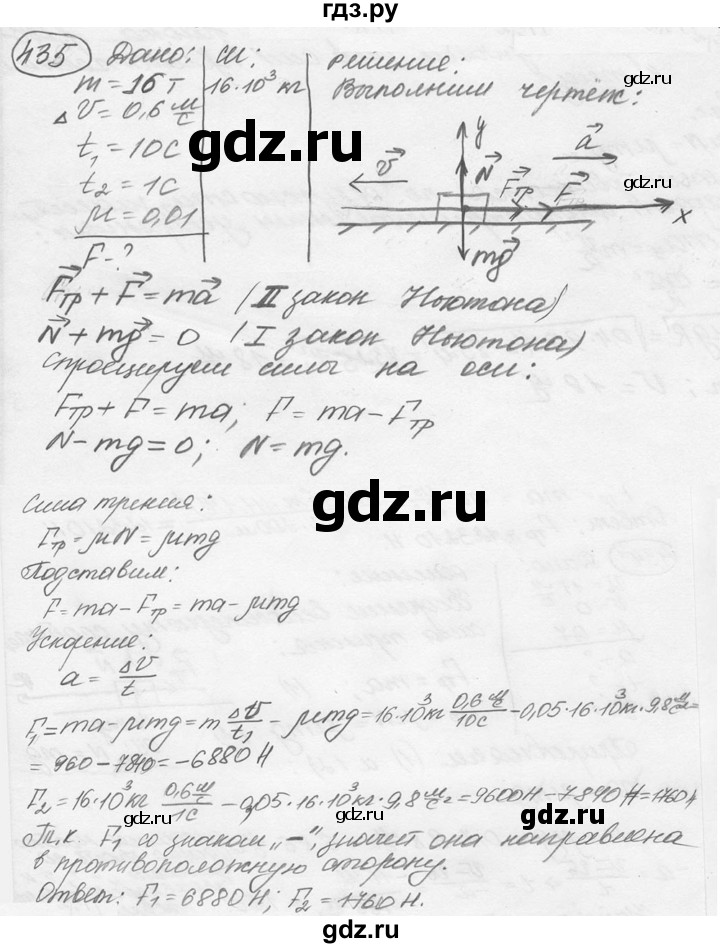 гдз.ру
435 Дано: СИ: Решение:
m = 16 т 16·10³ кг Выполним чертёж:
Δv = 0,6 м/с
t₁ = 10с
t₂ = 1с
μ = 0,01
F - ?
y
a
v
N
Fтр
F
x
mg
Fтр + F = ma (II закон Ньютона)
N + mg = 0 (I закон Ньютона)
Спроецируем силы на оси:
Fтр + F = ma; F = ma - Fтр
N - mg = 0; N = mg.
Сила трения:
Fтр = μN = μmg
Подставим:
F = ma - Fтр = ma - μmg
Ускорение:
a = Δv/t
F₁ = ma - μmg = m Δv/t₁ - μmg = 16·10³кг 0,6 м/с / 10с - 0,05·16·10³кг·9,8 м/с² =
= 960 - 7840 = -6880 Н
F₂ = 16·10³кг 0,6 м/с / 1с - 0,05·16·10³кг·9,8 м/с² = 9600Н - 7840Н = 1760Н
Т.к. F₁ со знаком „-", значит она направлена
в противоположную сторону.
Ответ: F₁ = 6880Н; F₂ = 1760Н.
gdz.ru
gdz.ru
gdz.ru
gdz.ru
gdz.ru
gdz.ru
gdz.ru
gdz.ru
gdz.ru
gdz.ru
gdz.ru